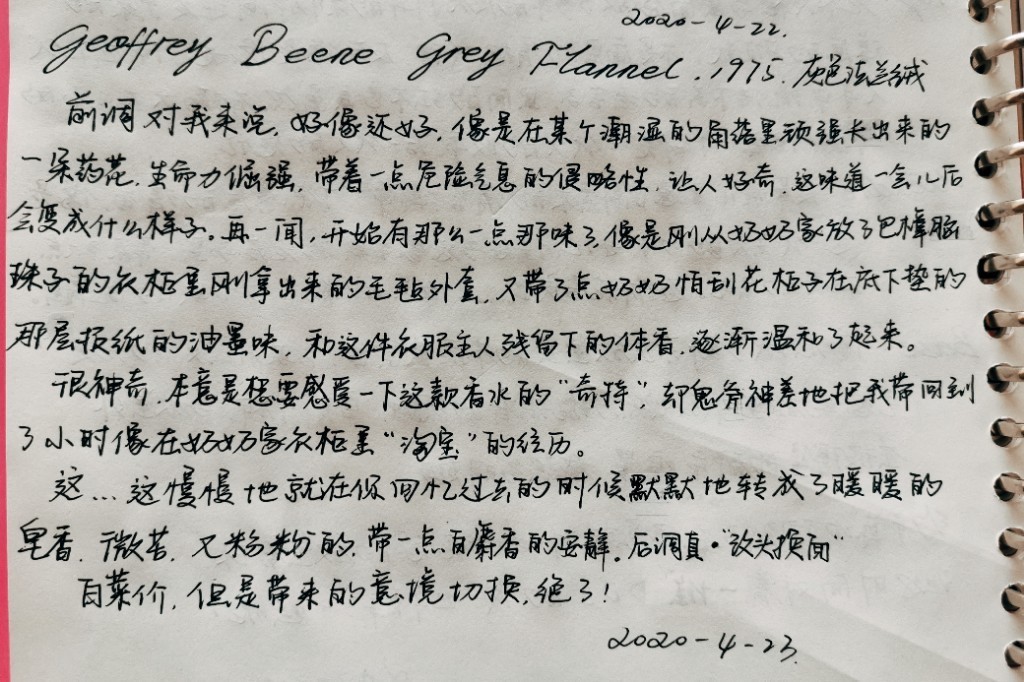 2020-4-22.
Geoffrey Beene Grey Flannel. 1975. 灰色法兰绒
前调对我来说,好像还好,像是在某个潮湿的角落里顽强长出来的
一朵药花,生命力倔强,带着一点危险气息的侵略性,让人好奇,这味道一会儿后
会变成什么样子。再一闻,开始有那么一点那味了,像是刚从奶奶家放了包樟脑
珠子的衣柜里刚拿出来的毛毡外套,又带了点奶奶怕刮花柜子在底下垫的
那层报纸的油墨味,和这件衣服主人残留下的体香,逐渐温和了起来。
很神奇,本意是想要感受一下这款香水的“奇特”,却鬼斧神差地把我带回到
了小时像在奶奶家衣柜里“淘宝”的经历。
这...这慢慢地就在你回忆过去的时候默默地转成了暖暖的
皂香,微苦,又粉粉的,带一点白麝香的安静。后调真·“改头换面”
白菜价,但是带来的意境切换,绝了!
2020-4-23.